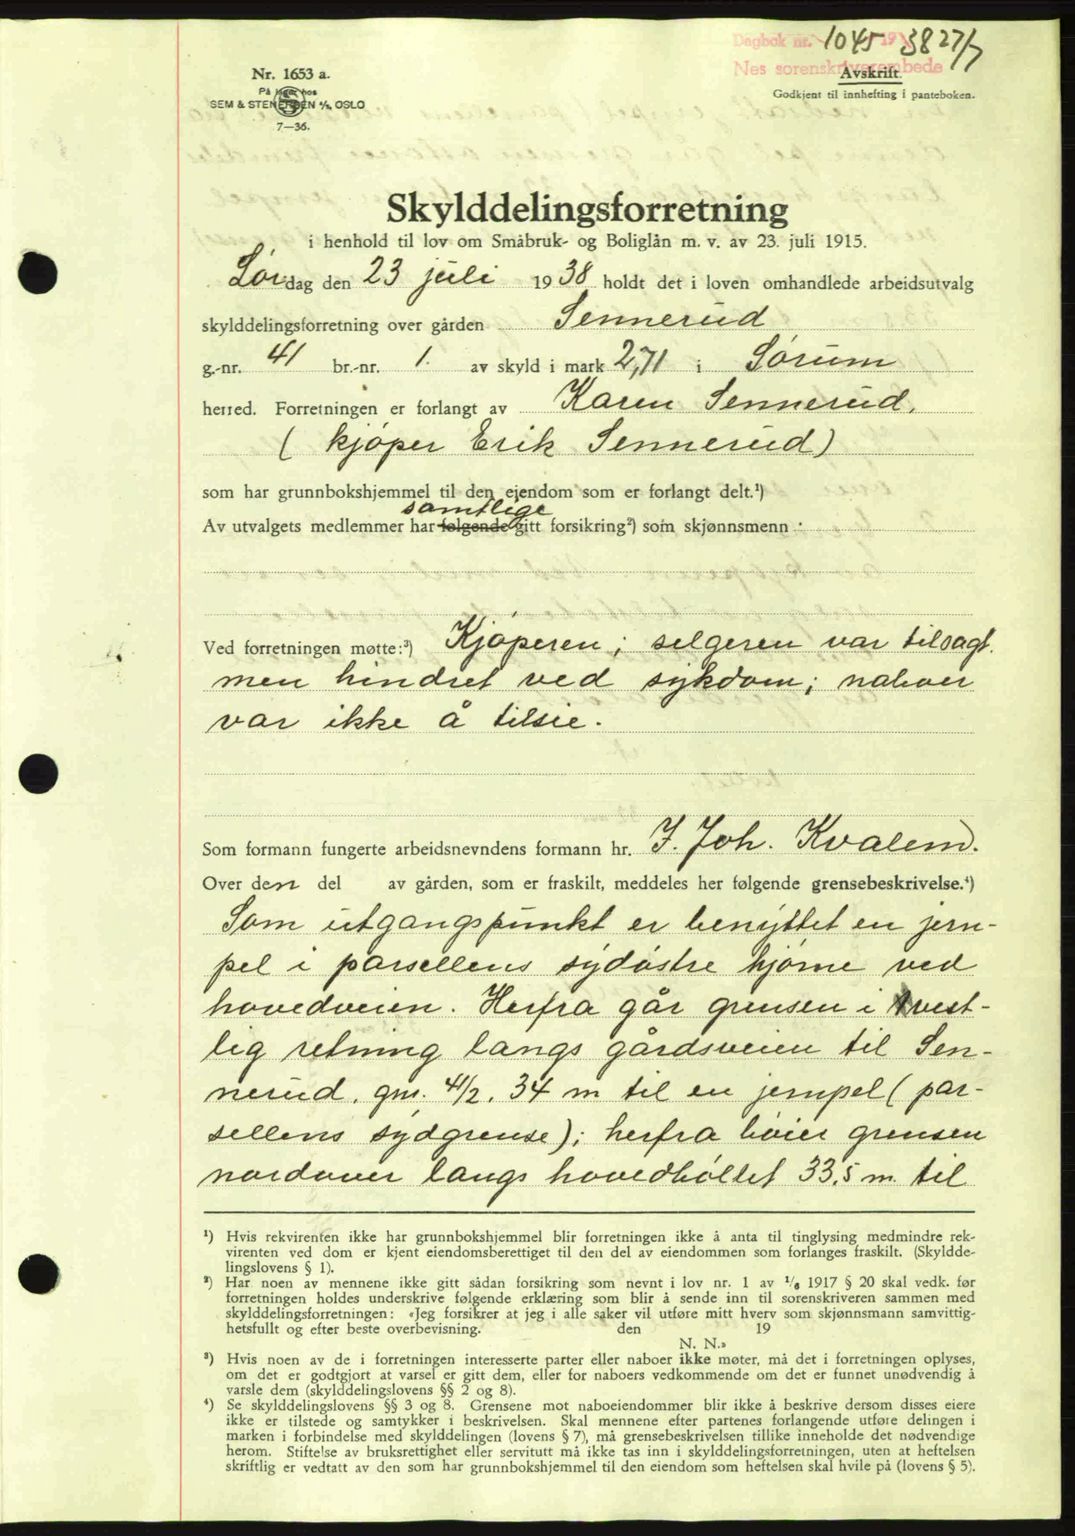 Dagbok nr. 1045 1938 27/7
Nes sorenskriverembede
Nr. 1653 a.
På lager hos
SEM & STENERSEN A/S, OSLO
7—36.
Avskrift.
Godkjent til innhefting i panteboken.
Skylddelingsforretning
i henhold til lov om Småbruk- og Boliglån m. v. av 23. juli 1915.
Lørdag den 23 juli 1938 holdt det i loven omhandlede arbeidsutvalg
skylddelingsforretning over gården Sennerud
g.-nr. 41 br.-nr. 1. av skyld i mark 2,71 i Sørum
herred. Forretningen er forlangt av Karen Sennerud.
( kjøper Erik Sennerud)
som har grunnbokshjemmel til den eiendom som er forlangt delt.¹)
samtlige
Av utvalgets medlemmer har følgende gitt forsikring²) som skjønnsmenn
Ved forretningen møtte:³) Kjøperen; selgeren var tilsagt.
men hindret ved sykdom; naboer
var ikke å tilsie.
Som formann fungerte arbeidsnevndens formann hr. J. Joh. Kvalem.
Over den del av gården, som er fraskilt, meddeles her følgende grensebeskrivelse.⁴)
Som utgangspunkt er benyttet en jern-
pel i parsellens sydøstre hjørne ved
hovedveien. Herfra går grensen i vest-
lig retning langs gårdsveien til Sen-
nerud. gnr. 41/2. 34 m til en jernpel (par-
sellens sydgrense); herfra bøier grensen
nordover langs hovedbøltet 33,5 m. til
¹) Hvis rekvirenten ikke har grunnbokshjemmel blir forretningen ikke å anta til tinglysing medmindre rek-
virenten ved dom er kjent eiendomsberettiget til den del av eiendommen som forlanges fraskilt. (Skyldde-
lingslovens § 1).
²) Har noen av mennene ikke gitt sådan forsikring som nevnt i lov nr. 1 av 1/6 1917 § 20 skal vedk. før
forretningen holdes underskrive følgende erklæring som blir å sende inn til sorenskriveren sammen med
skylddelingsforretningen: «Jeg forsikrer at jeg i alle saker vil utføre mitt hverv som skjønnsmann samvittig-
hetsfullt og efter beste overbevisning. den 19
N. N.»
³) Hvis noen av de i forretningen interesserte parter eller naboer ikke møter, må det i forretningen oplyses,
om det er godtgjort at varsel er gitt dem, eller for naboers vedkommende om det er funnet unødvendig å
varsle dem (skylddelingslovens §§ 2 og 8).
⁴) Se skylddelingslovens §§ 3 og 8. Grensene mot naboeiendommer blir ikke å beskrive dersom disses eiere
ikke er tilstede og samtykker i beskrivelsen. Skal mennene efter partenes forlangende utføre delingen i
marken i forbindelse med skylddelingen (lovens § 7), må grensebeskrivelsen tillike inneholde det nødvendige
herom. Stiftelse av bruksrettighet eller servitutt må ikke tas inn i skylddelingsforretningen, uten at heftelsen
skriftlig er vedtatt av den som har grunnbokshjemmel til den eiendom som heftelsen skal hvile på (lovens § 5).